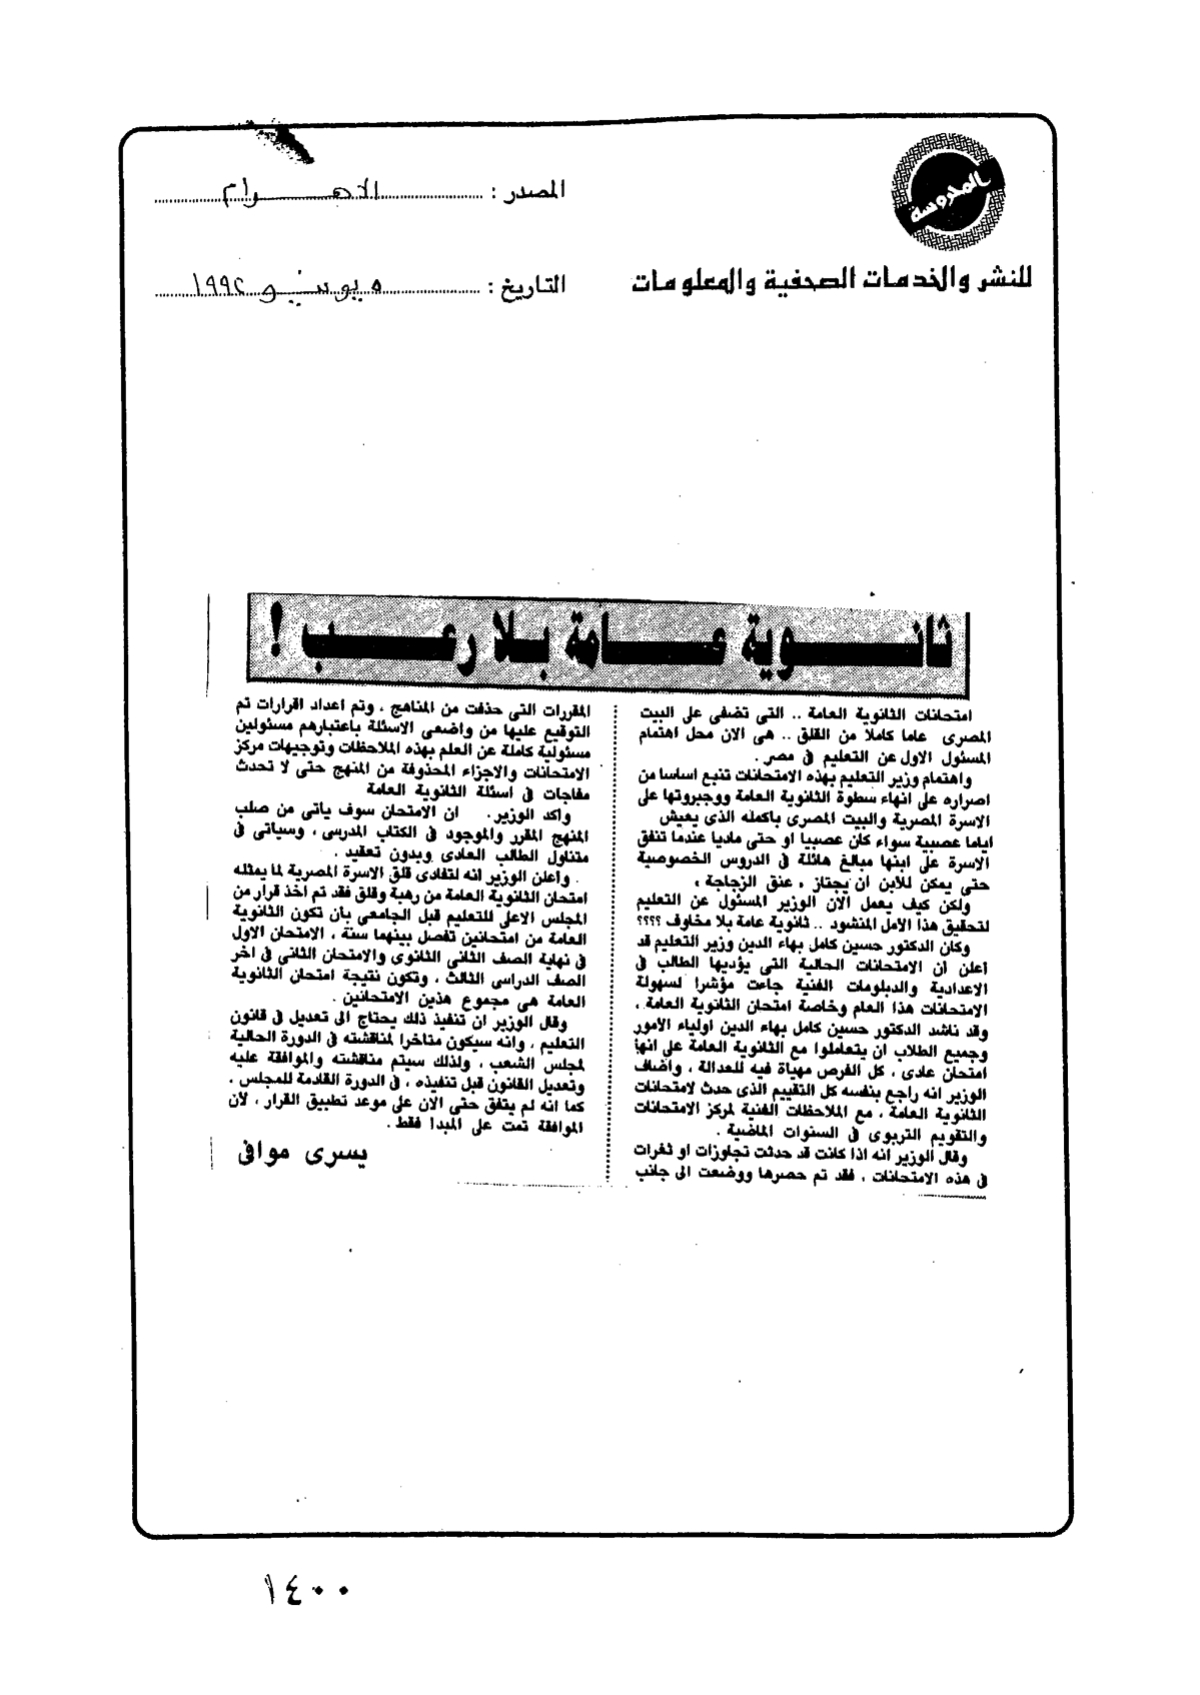 المحروسة
للنشر والخدمات الصحفية والمعلومات
المصدر : الاهرام
التاريخ : ٥ يونيو ١٩٩٢
ثانوية عامة بلا رعب !
امتحانات الثانوية العامة .. التى تضفى على البيت
المصرى عاما كاملا من القلق .. هى الان محل اهتمام
المسئول الاول عن التعليم فى مصر .
واهتمام وزير التعليم بهذه الامتحانات تنبع اساسا من
اصراره على انهاء سطوة الثانوية العامة ووجبروتها على
الاسرة المصرية والبيت المصرى باكمله الذى يعيش
اياما عصبية سواء كان عصبيا او حتى ماديا عندما تنفق
الاسرة على ابنها مبالغ هائلة فى الدروس الخصوصية
حتى يمكن للابن ان يجتاز ، عنق الزجاجة ،
ولكن كيف يعمل الان الوزير المسئول عن التعليم
لتحقيق هذا الامل المنشود .. ثانوية عامة بلا مخاوف ؟؟؟؟
وكان الدكتور حسين كامل بهاء الدين وزير التعليم قد
أعلن ان الامتحانات الحالية التى يؤديها الطالب فى
الاعدادية والدبلومات الفنية جاءت مؤشرا لسهولة
الامتحانات هذا العام وخاصة امتحان الثانوية العامة ،
وقد ناشد الدكتور حسين كامل بهاء الدين اولياء الأمور
وجميع الطلاب ان يتعاملوا مع الثانوية العامة على انها
امتحان عادى ، كل الفرص مهياة فيه للعدالة ، واضاف
الوزير انه راجع بنفسه كل التقييم الذى حدث لامتحانات
الثانوية العامة ، مع الملاحظات الفنية لمركز الامتحانات
والتقويم التربوى فى السنوات الماضية .
وقال الوزير انه اذا كانت قد حدثت تجاوزات او ثغرات
فى هذه الامتحانات ، فقد تم حصرها ووضعت الى جانب
المقررات التى حذفت من المناهج ، وتم اعداد اقرارات تم
التوقيع عليها من واضعى الاسئلة باعتبارهم مسئولين
مسئولية كاملة عن العلم بهذه الملاحظات وتوجيهات مركز
الامتحانات والاجزاء المحذوفة من المنهج حتى لا تحدث
مفاجات فى اسئلة الثانوية العامة
واكد الوزير . ان الامتحان سوف ياتى من صلب
المنهج المقرر والموجود فى الكتاب المدرسى ، وسياتى فى
متناول الطالب العادى وبدون تعقيد .
واعلن الوزير انه لتفادى قلق الاسرة المصرية لما يمثله
امتحان الثانوية العامة من رهبة وقلق فقد تم اخذ قرار من
المجلس الاعلى للتعليم قبل الجامعى بأن تكون الثانوية
العامة من امتحانين تفصل بينهما سنة ، الامتحان الاول
فى نهاية الصف الثانى الثانوى والامتحان الثانى فى اخر
الصف الدراسى الثالث ، وتكون نتيجة امتحان الثانوية
العامة هى مجموع هذين الامتحانين .
وقال الوزير ان تنفيذ ذلك يحتاج الى تعديل فى قانون
التعليم ، وانه سيكون متاخرا لمناقشته فى الدورة الحالية
لمجلس الشعب ، ولذلك سيتم مناقشته والموافقة عليه
وتعديل القانون قبل تنفيذه ، فى الدورة القادمة للمجلس .
كما انه لم يتفق حتى الان على موعد تطبيق القرار ، لأن
الموافقة تمت على المبدا فقط .
يسرى موافى
١٤٠٠